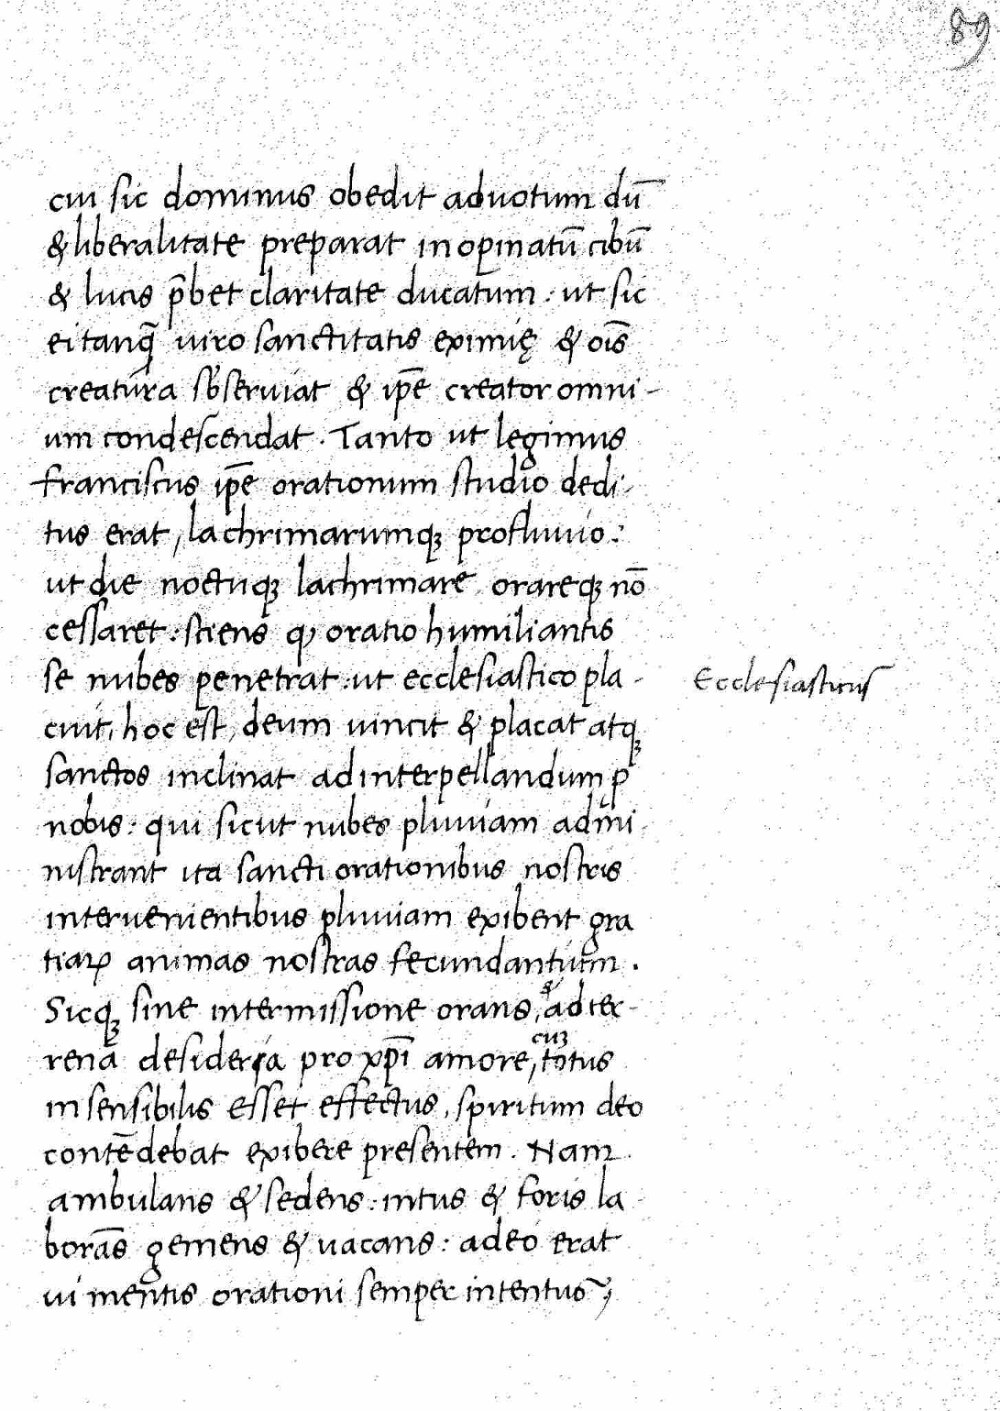 89
cui sic dominus obedit ad uotum dū
& liberalitate preparat inopinatū cibū
& lucis p̄bet claritate ducatum. ut sic
ei tanq̄ uiro sanctitatis eximię & oīs
creatura sb'seruiat & ip̄e creator omni-
um condescendat. Tanto ut legimus
franciscus ip̄e orationum studio dedi-
tus erat, lachrimarumq; profluuio:
ut die noctuq; lachrimare orareq; nō
cessaret: sciens q, oratio humiliantis
se nubes penetrat: ut ecclesiastico pla-
Ecclesiasticus
cuit, hoc est, deum uincit & placat atq;
sanctos inclinat ad interpellandum p
nobis: qui sicut nubes pluuiam admi-
nistrant ita sancti orationibus nostris
interuenientibus pluuiam exibent gra
tiaꝝ animas nostras fecundantium.
Sicq; sine intermissione orans, ad ter-
rena desideria pro xp̄i amore, cuʒ totus
insensibilis esset effectus, spiritum deo
contēdebat exibere presentem. Nam
ambulans & sedens: intus & foris la-
borās gemens & uacans: adeo erat
ui mentis orationi semper intentus;